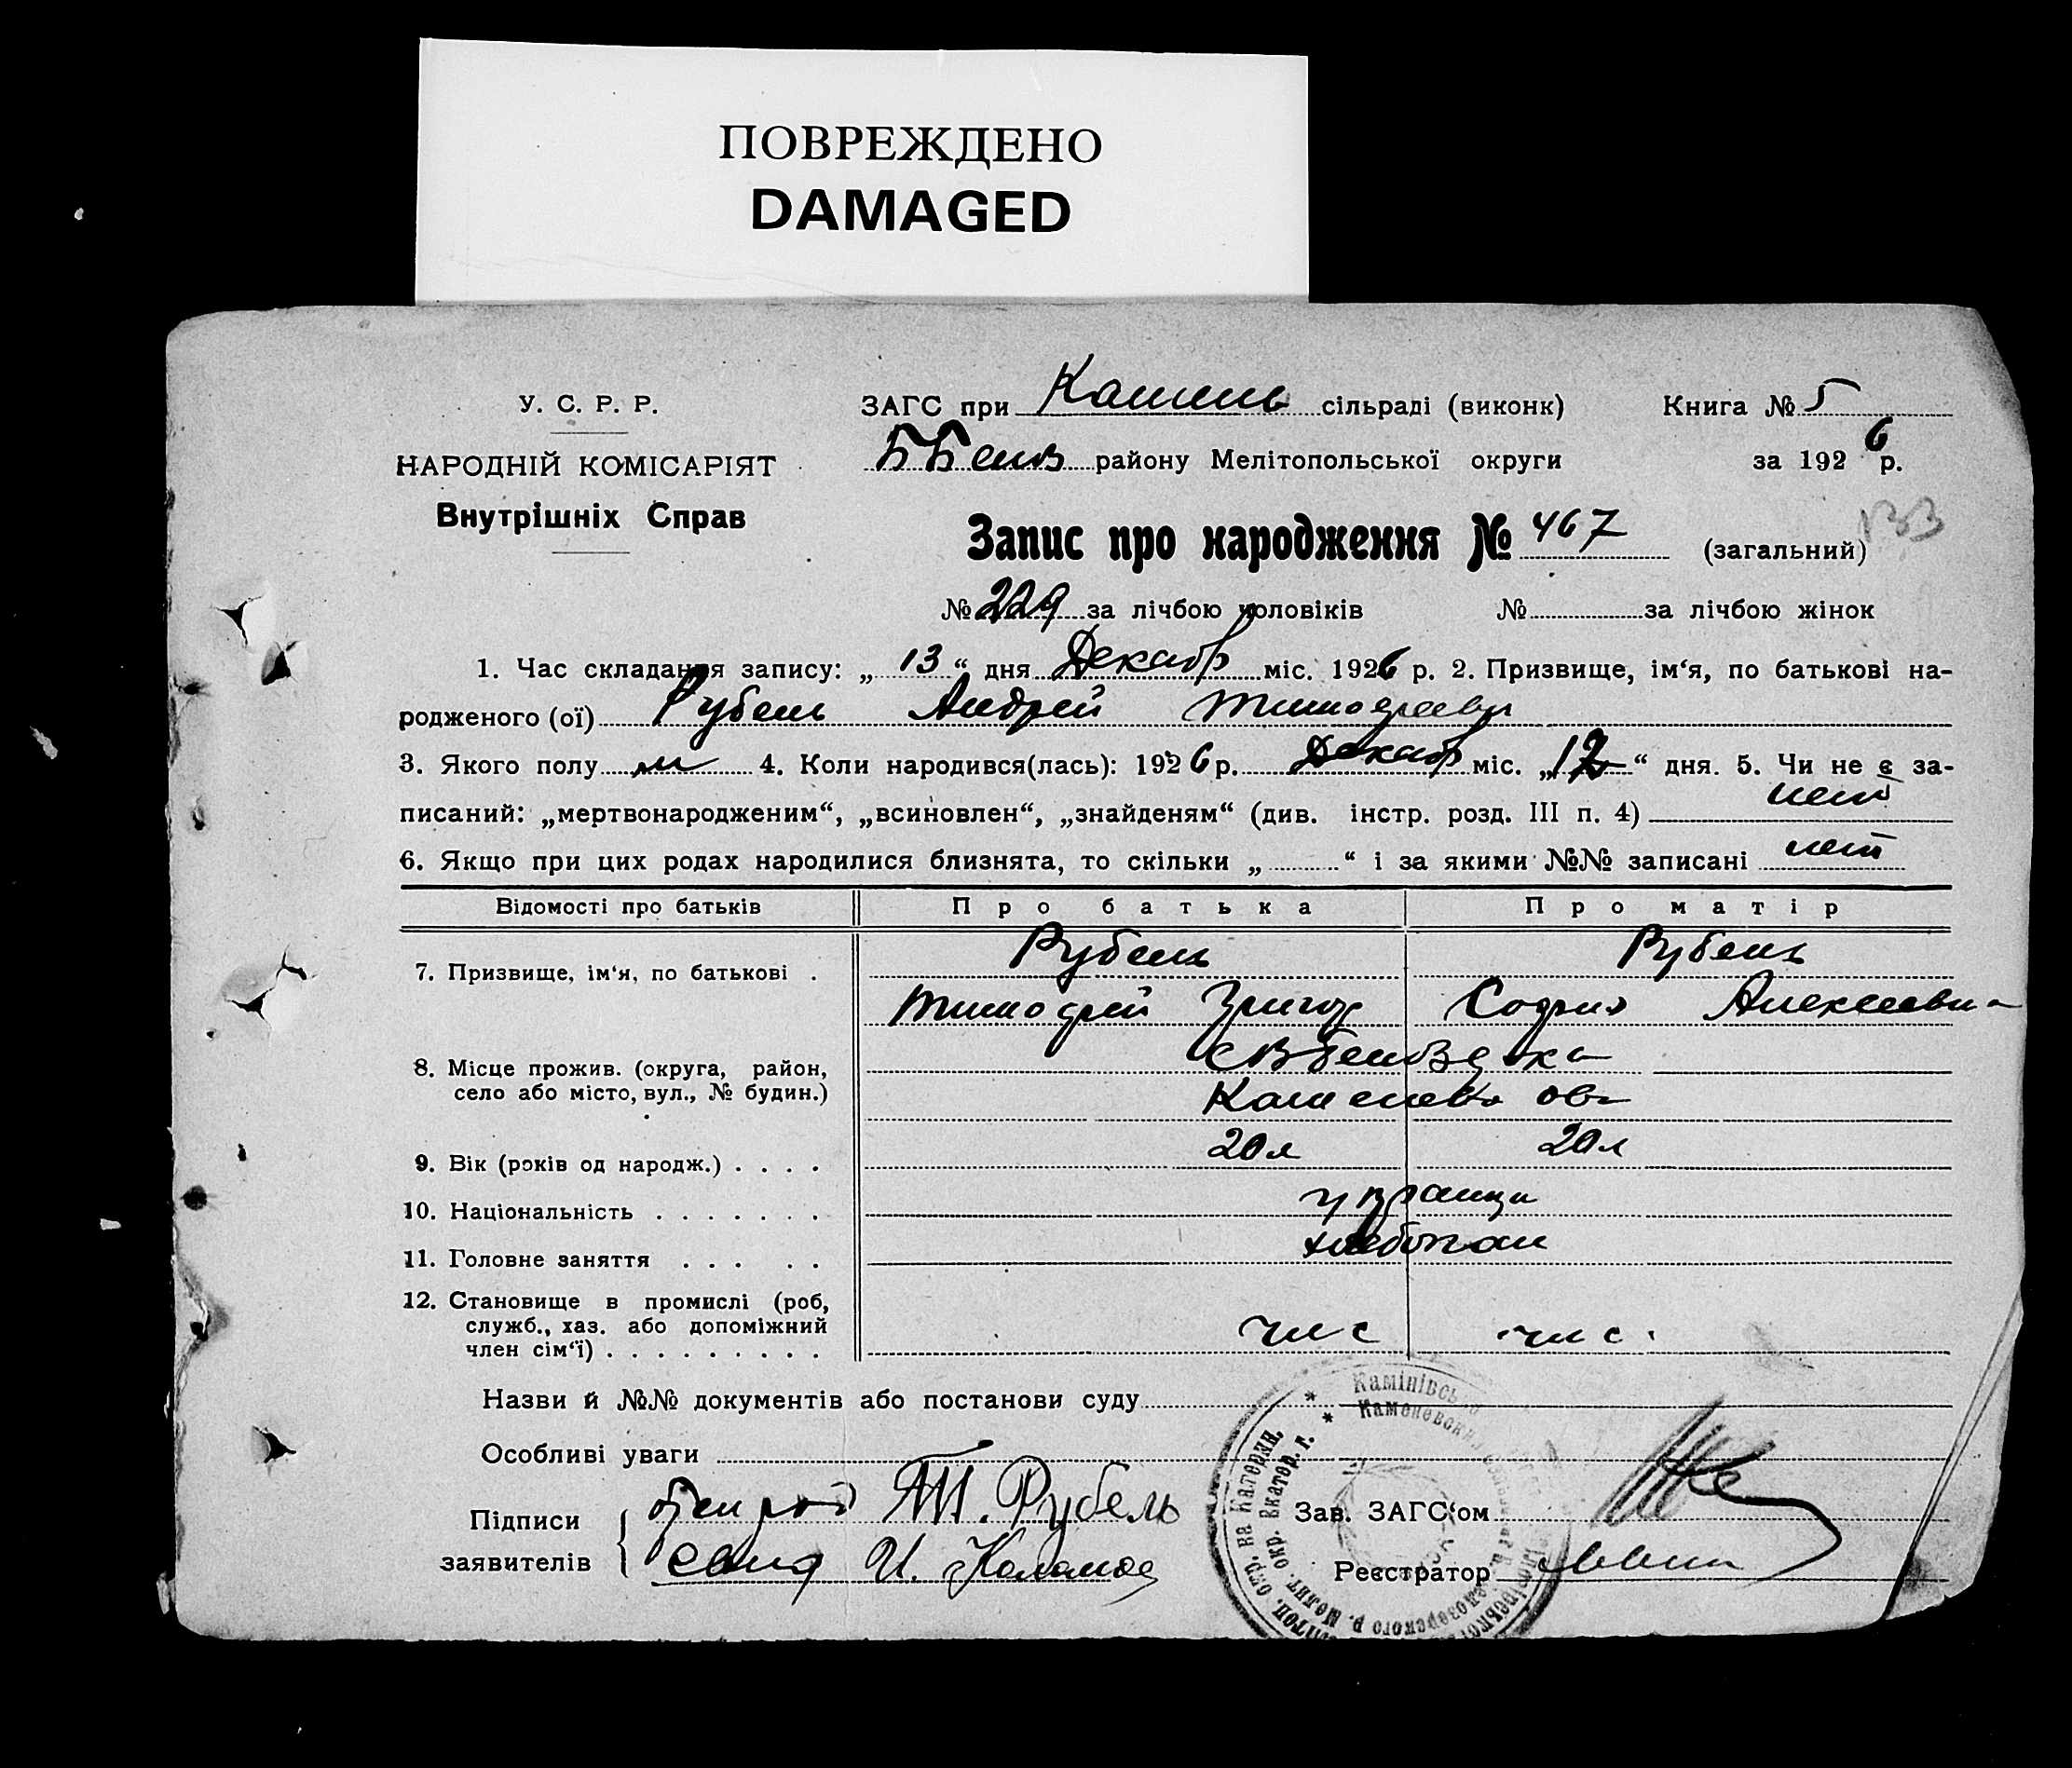 ПОВРЕЖДЕНО
DAMAGED
У. С. Р. Р.
ЗАГС при Камень сільраді (виконк)
Книга № 5
НАРОДНІЙ КОМІСАРІЯТ
району Мелітопольської округи
за 1926 р.
Внутрішніх Справ
Запис про народження № 467 (загальний) 133
№ 229 за лічбою чоловіків № за лічбою жінок
1. Час складання запису: „ 13 “ дня Декабр міс. 1926 р. 2. Призвище, ім‘я, по батькові на-
родженого (ої) Рубель Андрей Тимофееви
3. Якого полу м 4. Коли народився(лась): 1926 р. Декабр міс. „12“ дня. 5. Чи не є за-
нет
писаний: „мертвонародженим“, „всиновлен“, „знайденям“ (див. інстр. розд. III п. 4)
6. Якщо при цих родах народилися близнята, то скільки „ “ і за якими №№ записані нет
Відомості про батьків
Про батька
Про матір
7. Призвище, ім‘я, по батькові .
Рубель
Рубель
Тимофей Григор
София Алексеевна
8. Місце прожив. (округа, район,
село або місто, вул., № будин.)
9. Вік (років од народж.) . . . .
20 л
20 л
10. Національність . . . . . . .
украинци
11. Головне заняття . . . . .
хлебопаш
12. Становище в промислі (роб,
служб., хаз. або допоміжний
член сім‘ї) . . . . . . . . .
член
Назви й №№ документів або постанови суду
Особливі уваги
Підписи
заявителів
Т. Рубель
И.
Зав. ЗАГС‘ом
Реєстратор
Камінівсь
Каменевск
Мелит. окр. Екатер. г.